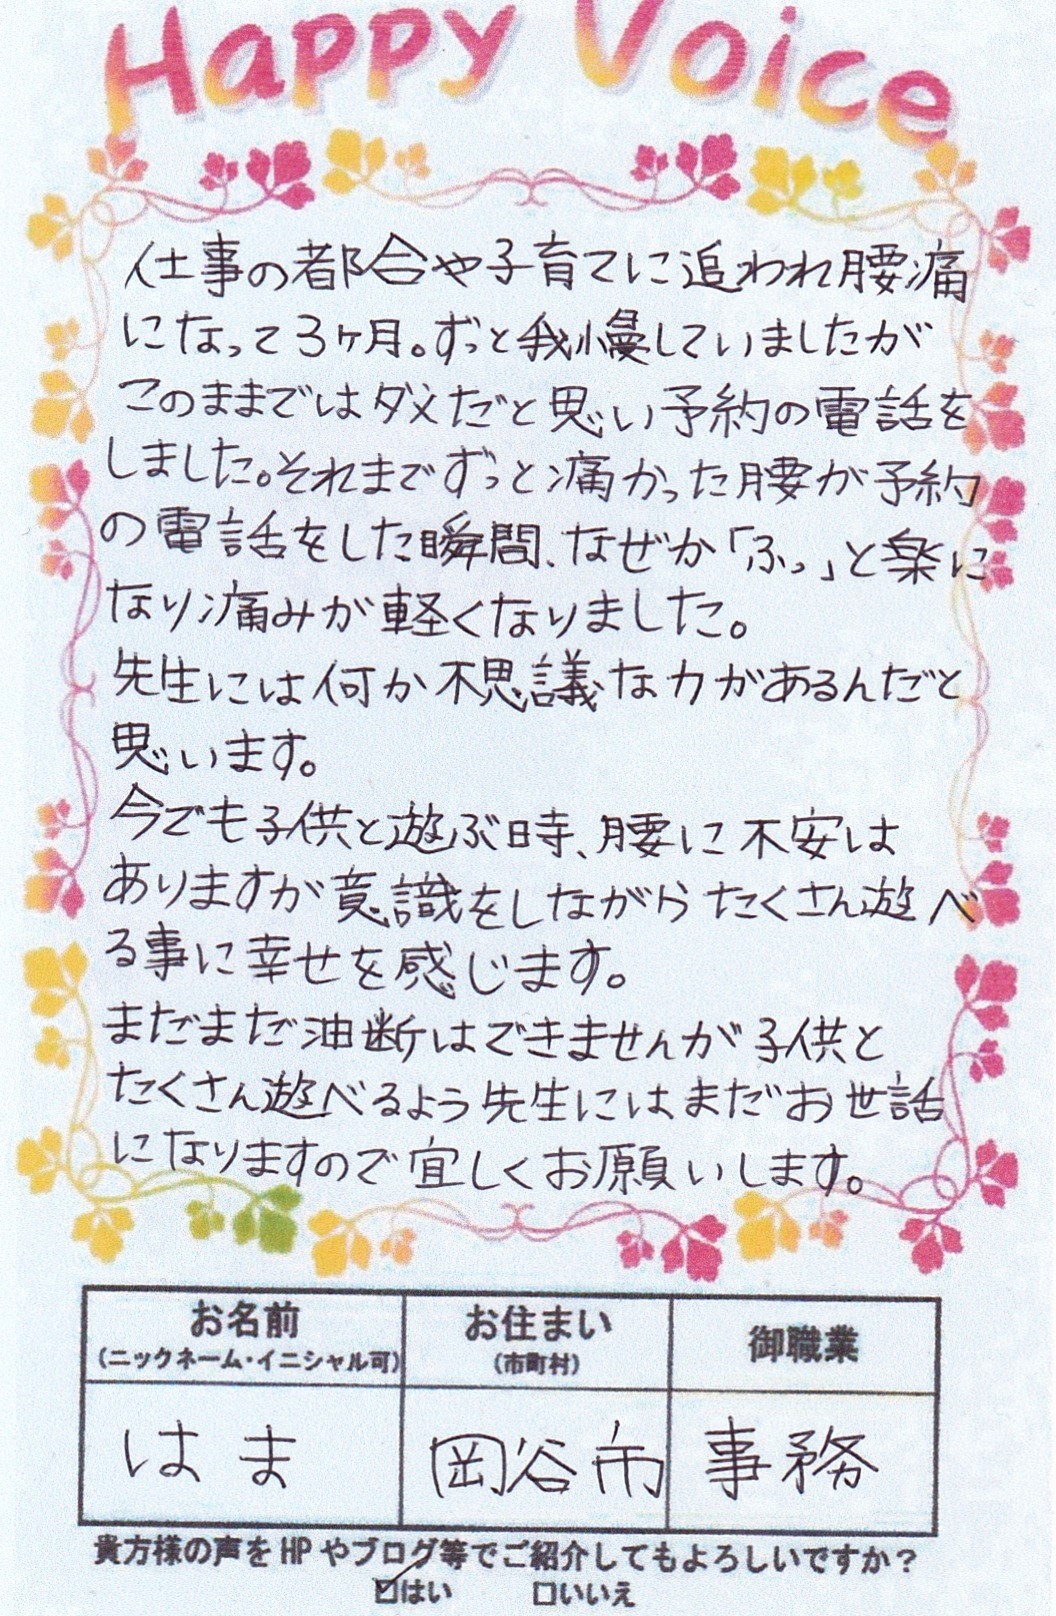 Happy Voice
仕事の都合や子育てに追われ腰痛
になって3ヶ月。ずっと我慢していましたが
このままではダメだと思い予約の電話を
しました。それまでずっと痛かった腰が予約
の電話をした瞬間、なぜか「ふっ」と楽に
なり痛みが軽くなりました。
先生には何か不思議な力があるんだと
思います。
今でも子供と遊ぶ時、腰に不安は
ありますが意識をしながらたくさん遊べ
る事に幸せを感じます。
まだまだ油断はできませんが子供と
たくさん遊べるよう先生にはまだお世話
になりますので宜しくお願いします。
お名前 お住まい 御職業
(ニックネーム・イニシャル可) (市町村)
はま 岡谷市 事務
貴方様の声をHPやブログ等でご紹介してもよろしいですか?
☑はい □いいえ